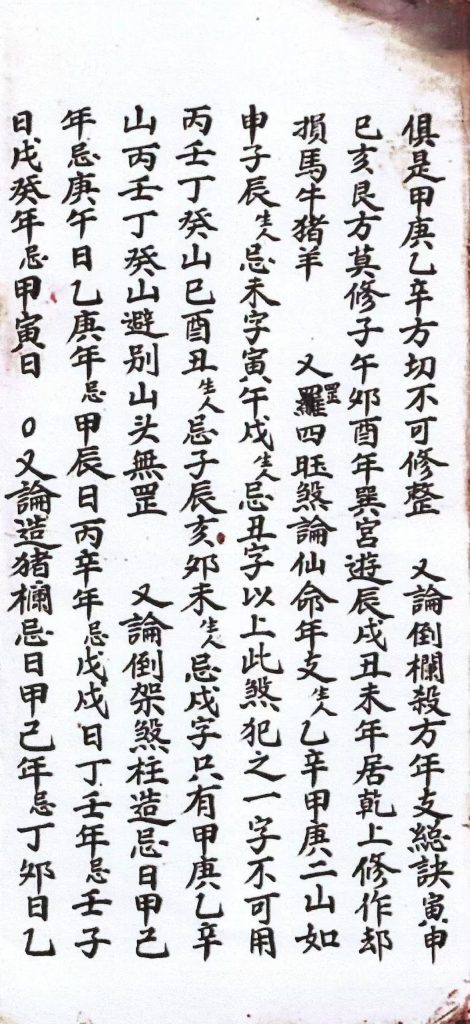 俱是甲庚乙辛方切不可修整　又論倒欄殺方年支總訣寅申
巳亥艮方莫修子午卯酉年巽宮遊辰戌丑未年居乾上修作却
損馬牛猪羊　又羅罡四旺煞論仙命年支生人乙辛甲庚二山如
申子辰生人忌未字寅午戌生人忌丑字以上此煞犯之一字不可用
丙壬丁癸山巳酉丑生人忌子辰亥卯未生人忌戌字只有甲庚乙辛
山丙壬丁癸山避別山头無罡　又論倒架煞柱造忌日甲己
年忌庚午日乙庚年忌甲辰日丙辛年忌戊戌日丁壬年忌壬子
日戊癸年忌甲寅日　○又論造猪欄忌日甲己年忌丁卯日乙